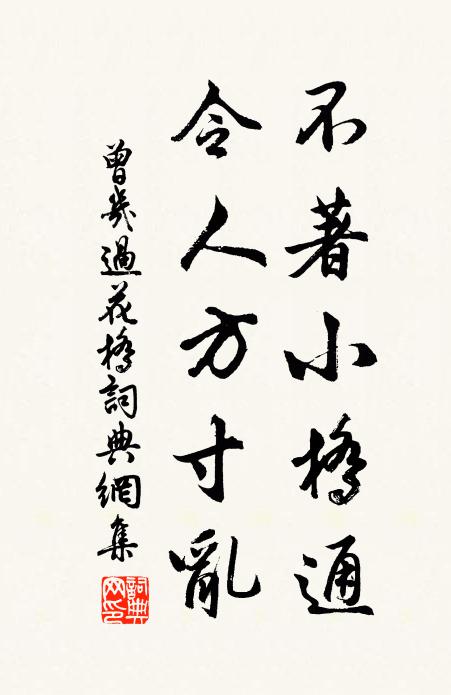 不著小橋通
令人方寸亂
曾幾過花橋詞典網集
詞典網印